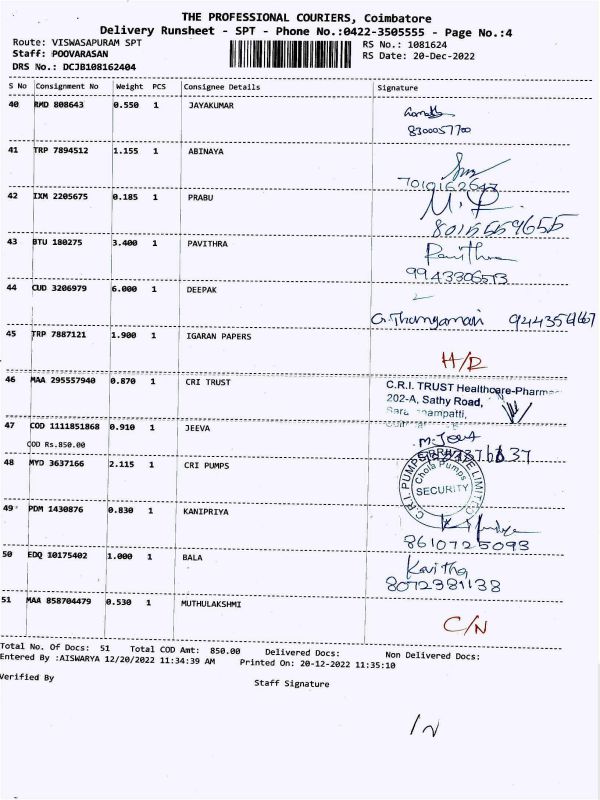 THE PROFESSIONAL COURIERS, Coimbatore
Delivery Runsheet - SPT - Phone No.:0422-3505555 - Page No.:4
Route: VISWASAPURAM SPT RS No.: 1081624
Staff: POOVARASAN RS Date: 20-Dec-2022
DRS No.: DCJB108162404
S No Consignment No Weight PCS Consignee Details Signature
40 RMD 808643 0.550 1 JAYAKUMAR
8300057700
41 TRP 7894512 1.155 1 ABINAYA
7010162647
42 IXM 2205675 0.185 1 PRABU
M.P.
43 BTU 180275 3.400 1 PAVITHRA Pavithra
9943306573
44 CUD 3206979 6.000 1 DEEPAK
G. Thangamari
45 TRP 7887121 1.900 1 IGARAN PAPERS
H/D
46 MAA 295557940 0.870 1 CRI TRUST C.R.I. TRUST Healthcare-Pharmac
202-A, Sathy Road,
47 COD 1111851868 0.910 1 JEEVA M. Jeeva
COD Rs.850.00
48 MYD 3637166 2.115 1 CRI PUMPS C.R.I. PUMPS PRIVATE LIMITED
Chola Pumps
SECURITY
49 PDM 1430876 0.830 1 KANIPRIYA
8610725093
50 EDQ 10175402 1.000 1 BALA Kavitha
8072381138
51 MAA 858704479 0.530 1 MUTHULAKSHMI
C/N
Total No. Of Docs: 51 Total COD Amt: 850.00 Delivered Docs: Non Delivered Docs:
Entered By :AISWARYA 12/20/2022 11:34:39 AM Printed On: 20-12-2022 11:35:10
Verified By Staff Signature